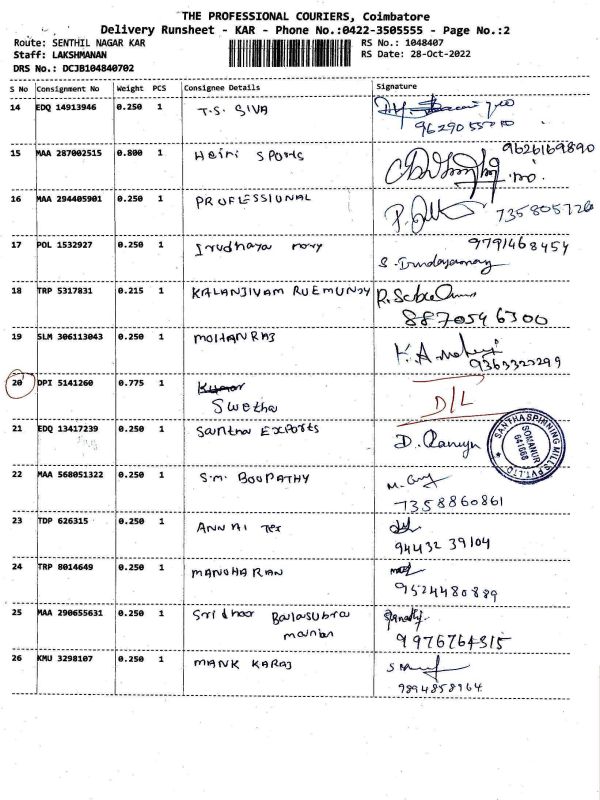 THE PROFESSIONAL COURIERS, Coimbatore
Delivery Runsheet - KAR - Phone No.:0422-3505555 - Page No.:2
Route: SENTHIL NAGAR KAR
RS No.: 1048407
Staff: LAKSHMANAN
RS Date: 28-Oct-2022
DRS No.: DCJB104840702
S No Consignment No Weight PCS Consignee Details Signature
14 EDQ 14913946 0.250 1 T.S. SIVA
15 MAA 287002515 0.800 1 Heiri SPORTS 9626169890
16 MAA 294405901 0.250 1 PROFLESSIONAL 735805726
17 POL 1532927 0.250 1 Irudhaya mory 9791468454
18 TRP 5317831 0.215 1 KALANJIVAM RUEMUNDY
8870546300
19 SLM 306113043 0.250 1 MOHANRAJ
9363320299
20 DPI 5141260 0.775 1 Kumar D/L
Swetha
21 EDQ 13417239 0.250 1 Santha EXPORTS
SANTHA SPINNING MILLS PVT. LTD
SOMANUR
641668
22 MAA 568051322 0.250 1 S.M. BOOPATHY
7358860861
23 TDP 626315 0.250 1 ANNAI Tex
94432 39104
24 TRP 8014649 0.250 1 MANOHARAN
9524480889
25 MAA 290655631 0.250 1 Sridhar Balasubra
manian
9976764315
26 KMU 3298107 0.250 1 MANK KARAJ
9894858964